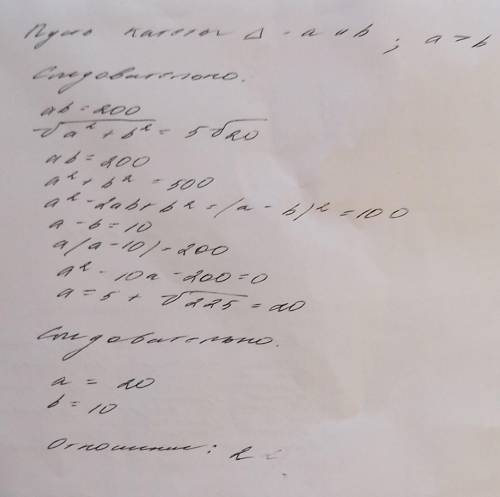 Пусть катеты Δ - a и b ; a > b
Следовательно.
ab = 200
√a² + b² = 5√20
ab = 200
a² + b² = 500
a² - 2ab + b² = (a - b)² = 100
a - b = 10
a(a - 10) = 200
a² - 10a - 200 = 0
a = 5 + √225 = 20
Следовательно.
a = 20
b = 10
Отношение: 2